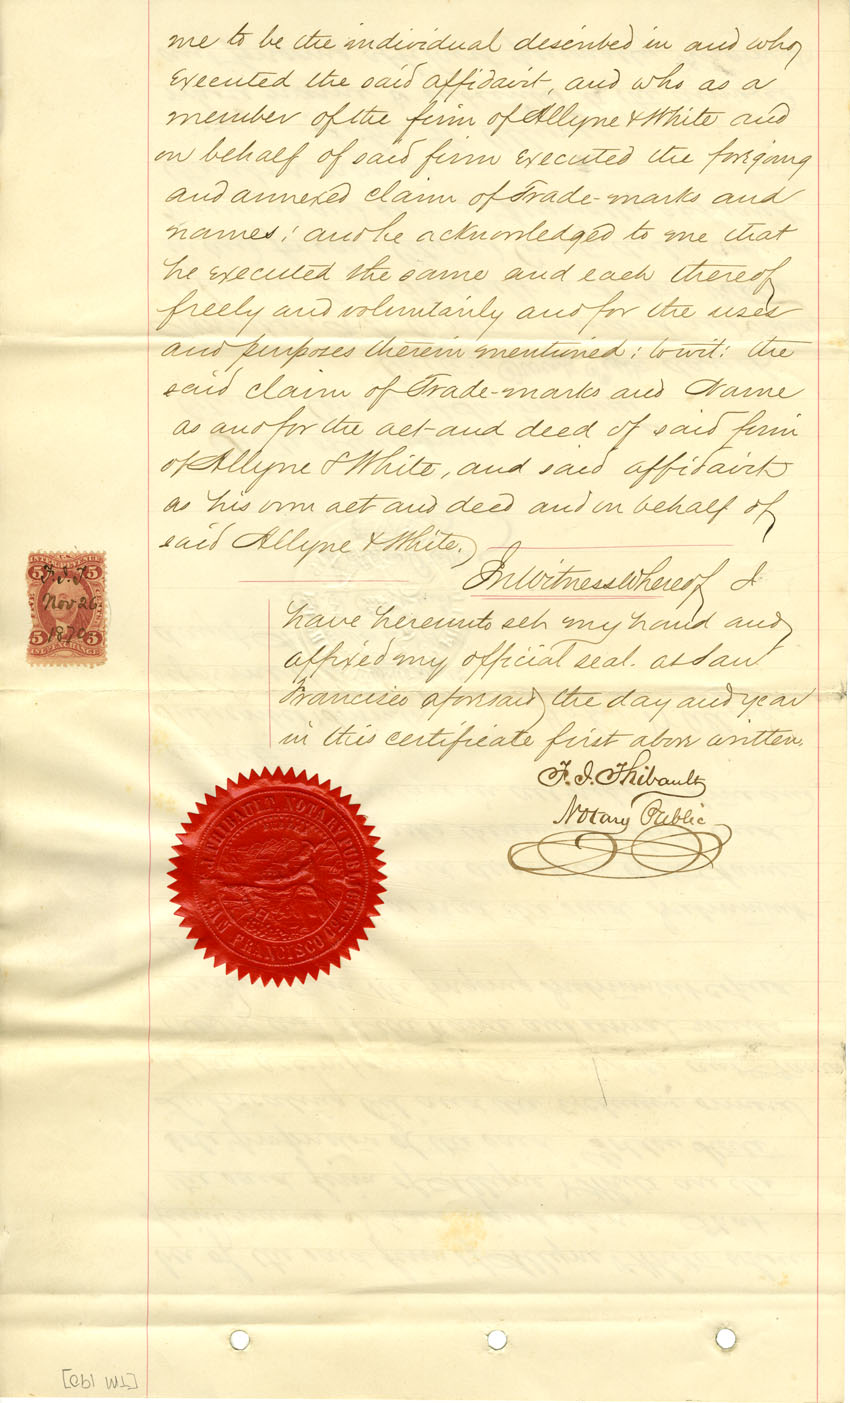 me to be the individual described in and who
executed the said affidavit, and who as a
member of the firm of Allyne & White and
on behalf of said firm executed the foregoing
and annexed claim of Trade-marks and
names; and he acknowledged to me that
he executed the same and each thereof
freely and voluntarily and for the uses
and purposes therein mentioned; to wit: the
said claim of Trade-marks and Name
as and for the act and deed of said firm
of Allyne & White, and said affidavit
as his own act and deed and on behalf of
said Allyne & White.
In Witness Whereof I
have hereunto set my hand and
affixed my official seal at San
Francisco aforesaid the day and year
in this certificate first above written.
F. J. Thibault
Notary Public
INTER REVENUE
5 5
F. J. T.
Nov 26
1870
5 5
THIBAULT, NOTARY PUBLIC
SAN FRANCISCO
[TM 190]